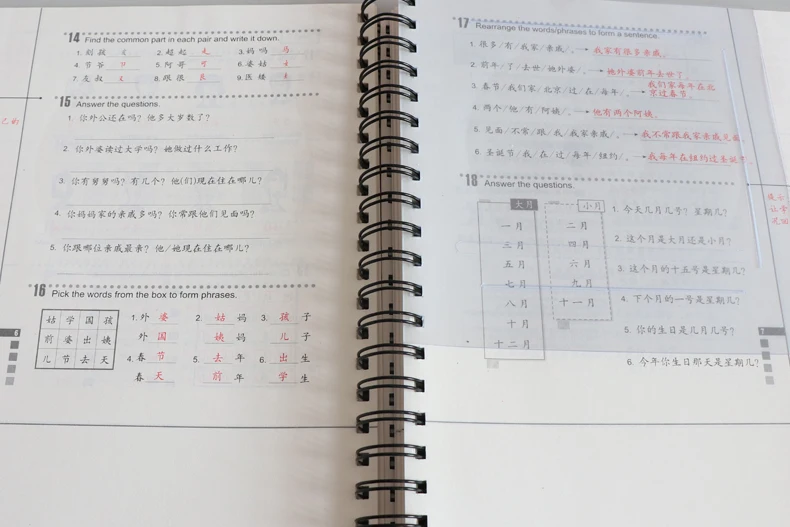 14 Find the common part in each pair and write it down.
1. 刻 孩 2. 超 起 3. 妈 吗 马
4. 节 爷 卩 5. 阿 哥 可 6. 婆 姑 女
7. 友 叔 又 8. 跟 很 艮 9. 医 矮 矢
15 Answer the questions.
1. 你外公还在吗？他多大岁数了？
2. 你外婆读过大学吗？她做过什么工作？
3. 你有舅舅吗？有几个？他(们)现在住在哪儿？
4. 你妈妈家的亲戚多吗？你常跟他们见面吗？
5. 你跟哪位亲戚最亲？他/她现在住在哪儿？
16 Pick the words from the box to form phrases.
姑 学 国 孩
前 婆 出 姨
儿 节 去 天
1. 外 婆 2. 姑 妈 3. 孩 子
外 国 姨 妈 儿 子
4. 春 节 5. 去 年 6. 出 生
春 天 前 年 学 生
6
17 Rearrange the words/phrases to form a sentence.
1. 很多/有/我家/亲戚/。→ 我家有很多亲戚。
2. 前年/了/去世/她外婆/。→ 她外婆前年去世了。
3. 春节/我们家/北京/过/在/每年/。→ 我们家每年在北
京过春节。
4. 两个/他/有/阿姨/。→ 他有两个阿姨。
5. 见面/不常/跟/我/我家亲戚/。→ 我不常跟我家亲戚见面
6. 圣诞节/我/在/过/每年/纽约/。→ 我每年在纽约过圣诞节
18 Answer the questions.
大月 小月
一月 二月
三月 四月
五月 六月
七月 九月
八月 十一月
十月
十二月
1. 今天几月几号？星期几？
2. 这个月是大月还是小月？
3. 这个月的十五号是星期几？
4. 下个月的一号是星期几？
5. 你的生日是几月几号？
6. 今年你生日那天是星期几？
7